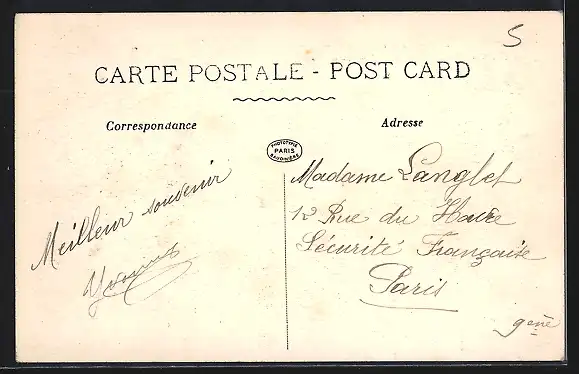 5
CARTE POSTALE - POST CARD
Correspondance
Adresse
PHOTOTYPIE
PARIS
Meilleur souvenir
Yvonne
Madame Langlet
12 Rue du Havre
Sécurité Française
Paris
9eme